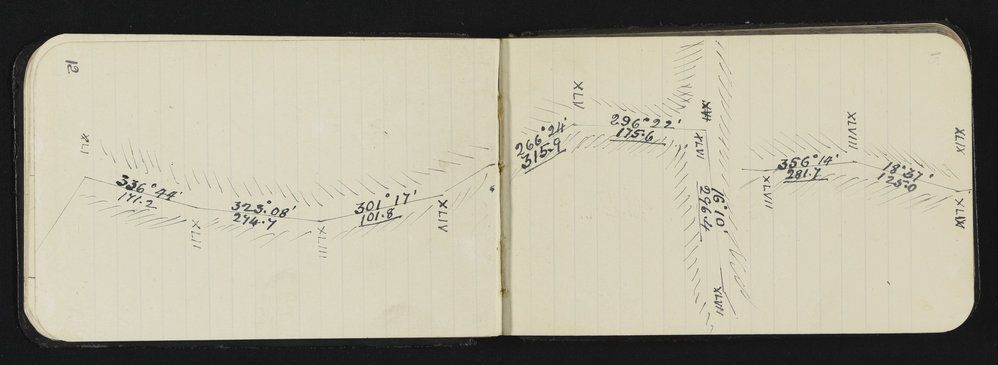 12
XLI
336° 44'
171.2
XLII
323° 08'
274.7
XLIII
301° 17'
101.8
XLIV
266° 24'
315.9
XLV
296° 22'
175.6
XLVI
16° 10'
296.4
XLVII
XLVII
356° 14'
281.7
XLVIII
18° 37'
125.0
XLIX
XLIX